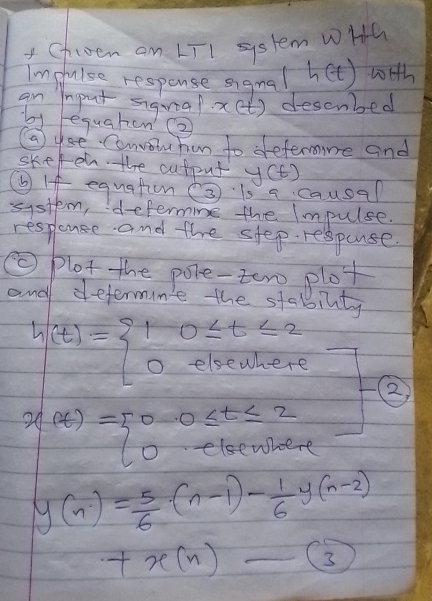 + Given an LTI system with
Impulse response signal h(t) with
an Input signal x(t) described
by equation (2)
(a) use convolution to determine and
sketch the output y(t)
(b) If equation (3) is a causal
system, determine the Impulse
response and the step response.
(c) plot the pole-zero plot
and determine the stability
h(t) = { 1 0 ≤ t ≤ 2
0 elsewhere
(2)
x(t) = { 0 0 ≤ t ≤ 2
0 elsewhere
y(n) = 5/6 (n-1) - 1/6 y(n-2)
+ x(n) — (3)